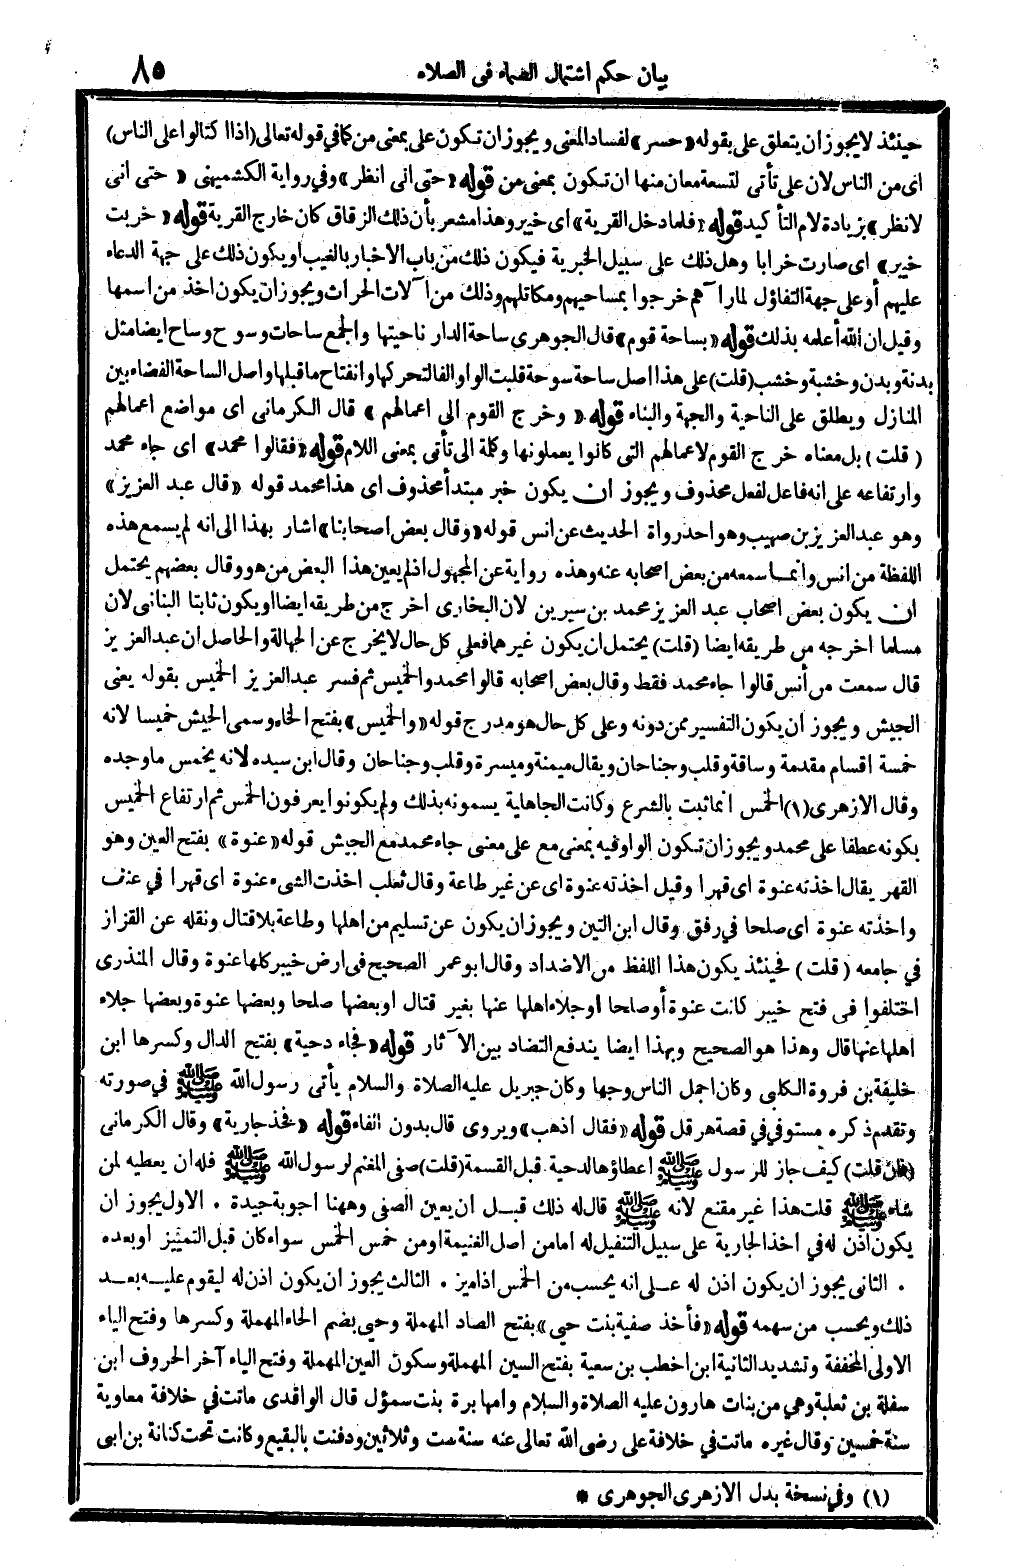 بيان حكم اشتمال الصماء فى الصلاة ٨٥
حينئذ لا يجوز ان يتعلق على بقوله «حسر» لفساد المعنى ويجوز ان تكون على بمعنى من كما في قوله تعالى (اذا اكتالوا على الناس)
اى من الناس لان على تأتى لتسعة معان منها ان تكون بمعنى من قوله «حتى انى انظر» وفي رواية الكشميهنى « حتى انى
لانظر » بزيادة لام التأكيد قوله «فلما دخل القرية» اى خيبر وهذا مشعر بأن ذلك الزقاق كان خارج القرية قوله « خربت
خيبر» اى صارت خرابا وهل ذلك على سبيل الخبرية فيكون ذلك من باب الاخبار بالغيب او يكون ذلك على جهة الدعاء
عليهم أو على جهة التفاؤل لما رآهم خرجوا بمساحيهم ومكاتلهم وذلك من آلات الحراث ويجوز ان يكون اخذ من اسمها
وقيل ان الله أعلمه بذلك قوله «بساحة قوم» قال الجوهرى ساحة الدار ناحيتها والجمع ساحات وسوح وساح ايضا مثل
بدنة وبدن وخشبة وخشب (قلت) على هذا اصل ساحة سوحة قلبت الواو الفا لتحركها وانفتاح ما قبلها واصل الساحة الفضاء بين
المنازل ويطلق على الناحية والجهة والبناء قوله « وخرج القوم الى اعمالهم » قال الكرمانى اى مواضع اعمالهم
( قلت ) بل معناه خرج القوم لاعمالهم التى كانوا يعملونها وكلمة الى تأتى بمعنى اللام قوله «فقالوا محمد» اى جاء محمد
وارتفاعه على انه فاعل لفعل محذوف ويجوز ان يكون خبر مبتدأ محذوف اى هذا محمد قوله «قال عبد العزيز»
وهو عبد العزيز بن صهيب وهو احد رواة الحديث عن انس قوله «وقال بعض اصحابنا» اشار بهذا الى انه لم يسمع هذه
اللفظة من انس وانما سمعه من بعض اصحابه عنه وهذه رواية عن المجهول اذ لم يعين هذا البعض من هو وقال بعضهم يحتمل
ان يكون بعض اصحاب عبد العزيز محمد بن سيرين لان البخارى اخرج من طريقه ايضا او يكون ثابتا البنانى لان
مسلما اخرجه من طريقه ايضا (قلت) يحتمل ان يكون غيرهما فعلى كل حال لا يخرج عن الجهالة والحاصل ان عبد العزيز
قال سمعت من أنس قالوا جاء محمد فقط وقال بعض اصحابه قالوا محمد والخميس ثم فسر عبد العزيز الخميس بقوله يعنى
الجيش ويجوز ان يكون التفسير ممن دونه وعلى كل حال هو مدرج قوله «والخميس» بفتح الخاء وسمى الجيش خميسا لانه
خمسة اقسام مقدمة وساقة وقلب وجناحان ويقال ميمنة وميسرة وقلب وجناحان وقال ابن سيده لانه يخمس ما وجده
وقال الازهرى (١) الخمس انما ثبت بالشرع وكانت الجاهلية يسمونه بذلك ولم يكونوا يعرفون الخمس ثم ارتفاع الخميس
بكونه عطفا على محمد ويجوز ان تكون الواو فيه بمعنى مع على معنى جاء محمد مع الجيش قوله «عنوة» بفتح العين وهو
القهر يقال اخذته عنوة اى قهرا وقيل اخذته عنوة اى عن غير طاعة وقال ثعلب اخذت الشىء عنوة اى قهرا في عنف
واخذته عنوة اى صلحا في رفق وقال ابن التين ويجوز ان يكون عن تسليم من اهلها وطاعة بلا قتال ونقله عن القزاز
في جامعه ( قلت ) فحينئذ يكون هذا اللفظ من الاضداد وقال ابو عمر الصحيح فى ارض خيبر كلها عنوة وقال المنذرى
اختلفوا فى فتح خيبر كانت عنوة أو صلحا او جلاء اهلها عنها بغير قتال او بعضها صلحا وبعضها عنوة وبعضها جلاء
اهلها عنها قال وهذا هو الصحيح وبهذا ايضا يندفع التضاد بين الآثار قوله «فجاء دحية» بفتح الدال وكسرها ابن
خليفة بن فروة الكلبى وكان اجمل الناس وجها وكان جبريل عليه الصلاة والسلام يأتى رسول الله ﷺ في صورته
وتقدم ذكره مستوفي في قصة هرقل قوله «فقال اذهب» ويروى قال بدون الفاء قوله «فخذ جارية» وقال الكرمانى
(فان قلت) كيف جاز للرسول ﷺ اعطاؤها لدحية قبل القسمة (قلت) صفى المغنم لرسول الله ﷺ فله ان يعطيه لمن
شاء ﷺ قلت هذا غير مقنع لانه ﷺ قال له ذلك قبل ان يعين الصفى وههنا اجوبة جيدة . الاول يجوز ان
يكون اذن له في اخذ الجارية على سبيل التنفيل له اما من اصل الغنيمة او من خمس الخمس سواء كان قبل التمييز او بعده
. الثانى يجوز ان يكون اذن له على انه يحسب من الخمس اذا ميز . الثالث يجوز ان يكون اذن له ليقوم عليه بعد
ذلك ويحسب من سهمه قوله «فأخذ صفية بنت حيى» بفتح الصاد المهملة وحيى بضم الحاء المهملة وكسرها وفتح الياء
الاولى المخففة وتشديد الثانية ابن اخطب بن سعية بفتح السين المهملة وسكون العين المهملة وفتح الياء آخر الحروف ابن
سفلة بن ثعلبة وهي من بنات هارون عليه الصلاة والسلام وامها برة بنت سمؤل قال الواقدى ماتت في خلافة معاوية
سنة خمسين وقال غيره ماتت في خلافة على رضى الله تعالى عنه سنة ست وثلاثين ودفنت بالبقيع وكانت تحت كنانة بن ابى
(١) وفى نسخة بدل الازهرى الجوهرى *